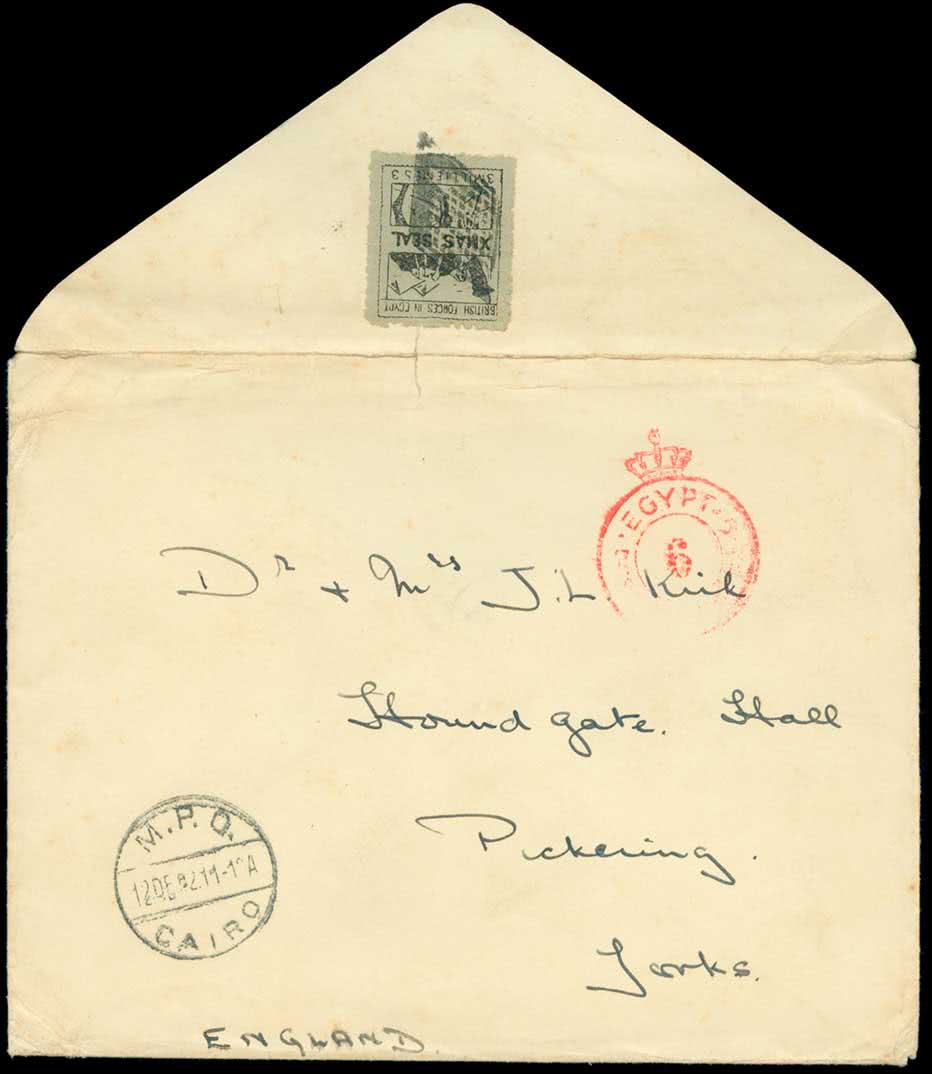 3 MILLIEMES 3
XMAS SEAL
BRITISH FORCES IN EGYPT
EGYPT
6
Dr + Mrs J.L. Kirk
Houndgate. Hall
Pickering.
Yorks.
M.P.O.
CAIRO
ENGLAND.